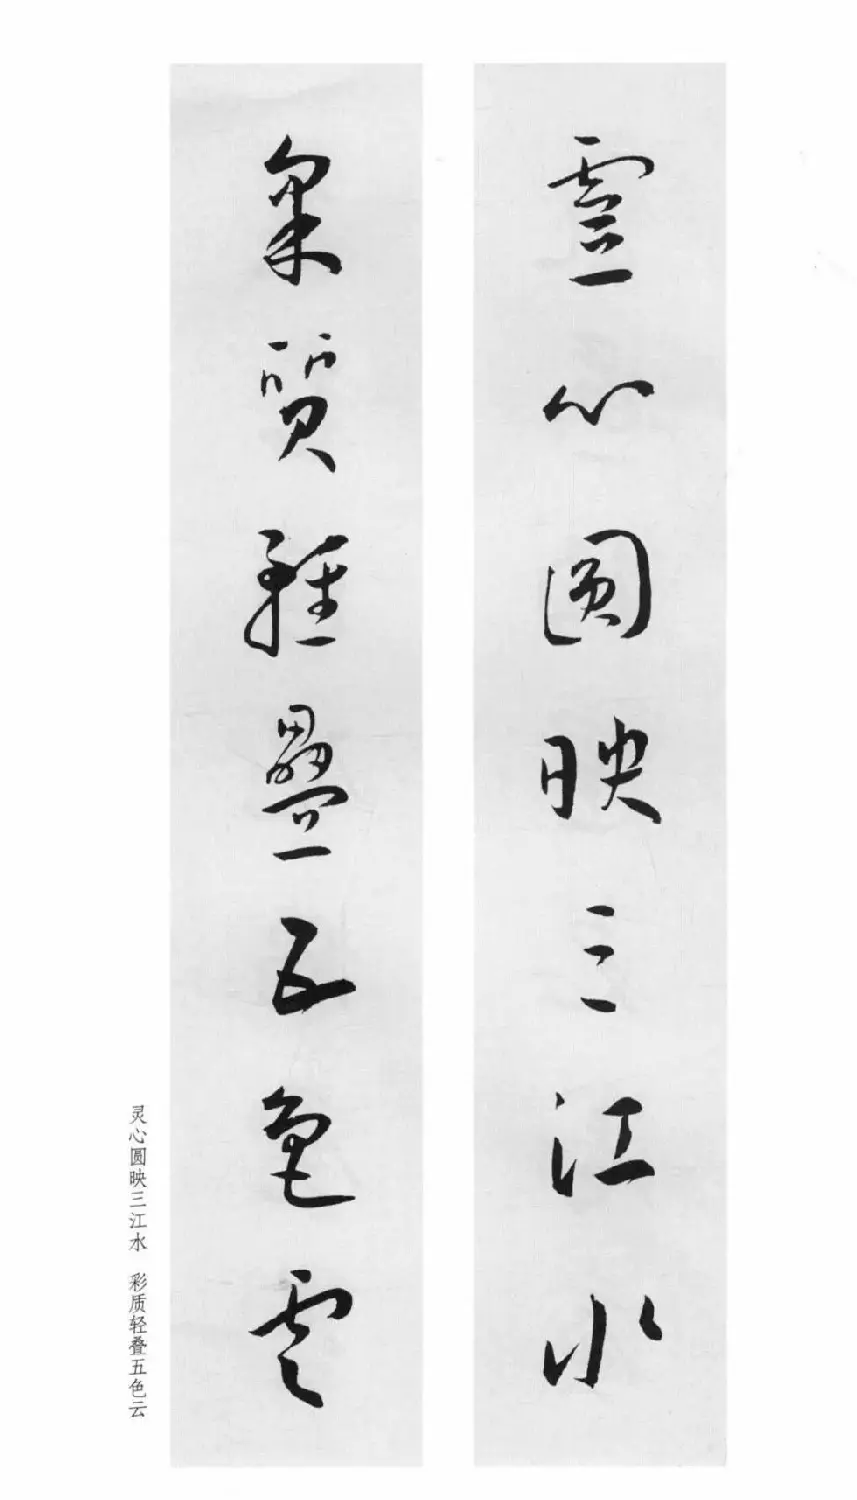 靈心圆映三江水
采質輕疊五色雲
灵心圆映三江水 彩质轻叠五色云